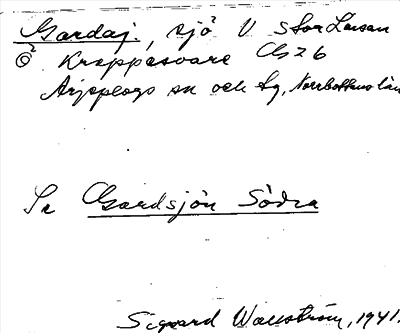 Gardaj., sjö V Stor Laisan
Ö Kroppasvare Gb 26
Arjeplogs sn och tg, Norrbottens län
Se Gardsjön Södra
Sigvard Wallström, 1941.